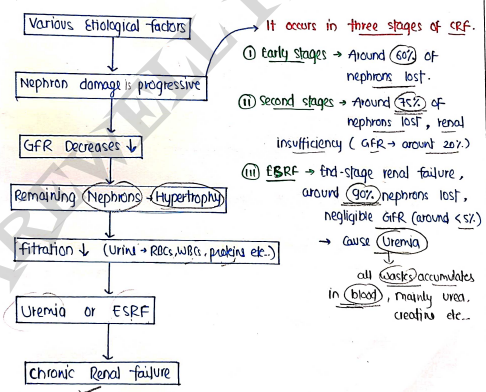 Various Etiological factors
Nephron damage is progressive
GFR Decreases ↓
Remaining Nephrons → Hypertrophy
filtration ↓ (Urine → RBCs, WBCs, proteins etc..)
Uremia or ESRF
Chronic Renal failure
→ It occurs in three stages of CRF.
(i) Early stages → Around 60% of
nephrons lost.
(ii) Second stages → Around 75% of
nephrons lost, renal
insufficiency (GFR → arount 20%)
(iii) ESRF → End-stage renal failure,
around 90% nephrons lost,
negligible GFR (around <5%)
→ cause Uremia
all wastes accumulates
in blood, mainly urea,
creatine etc...